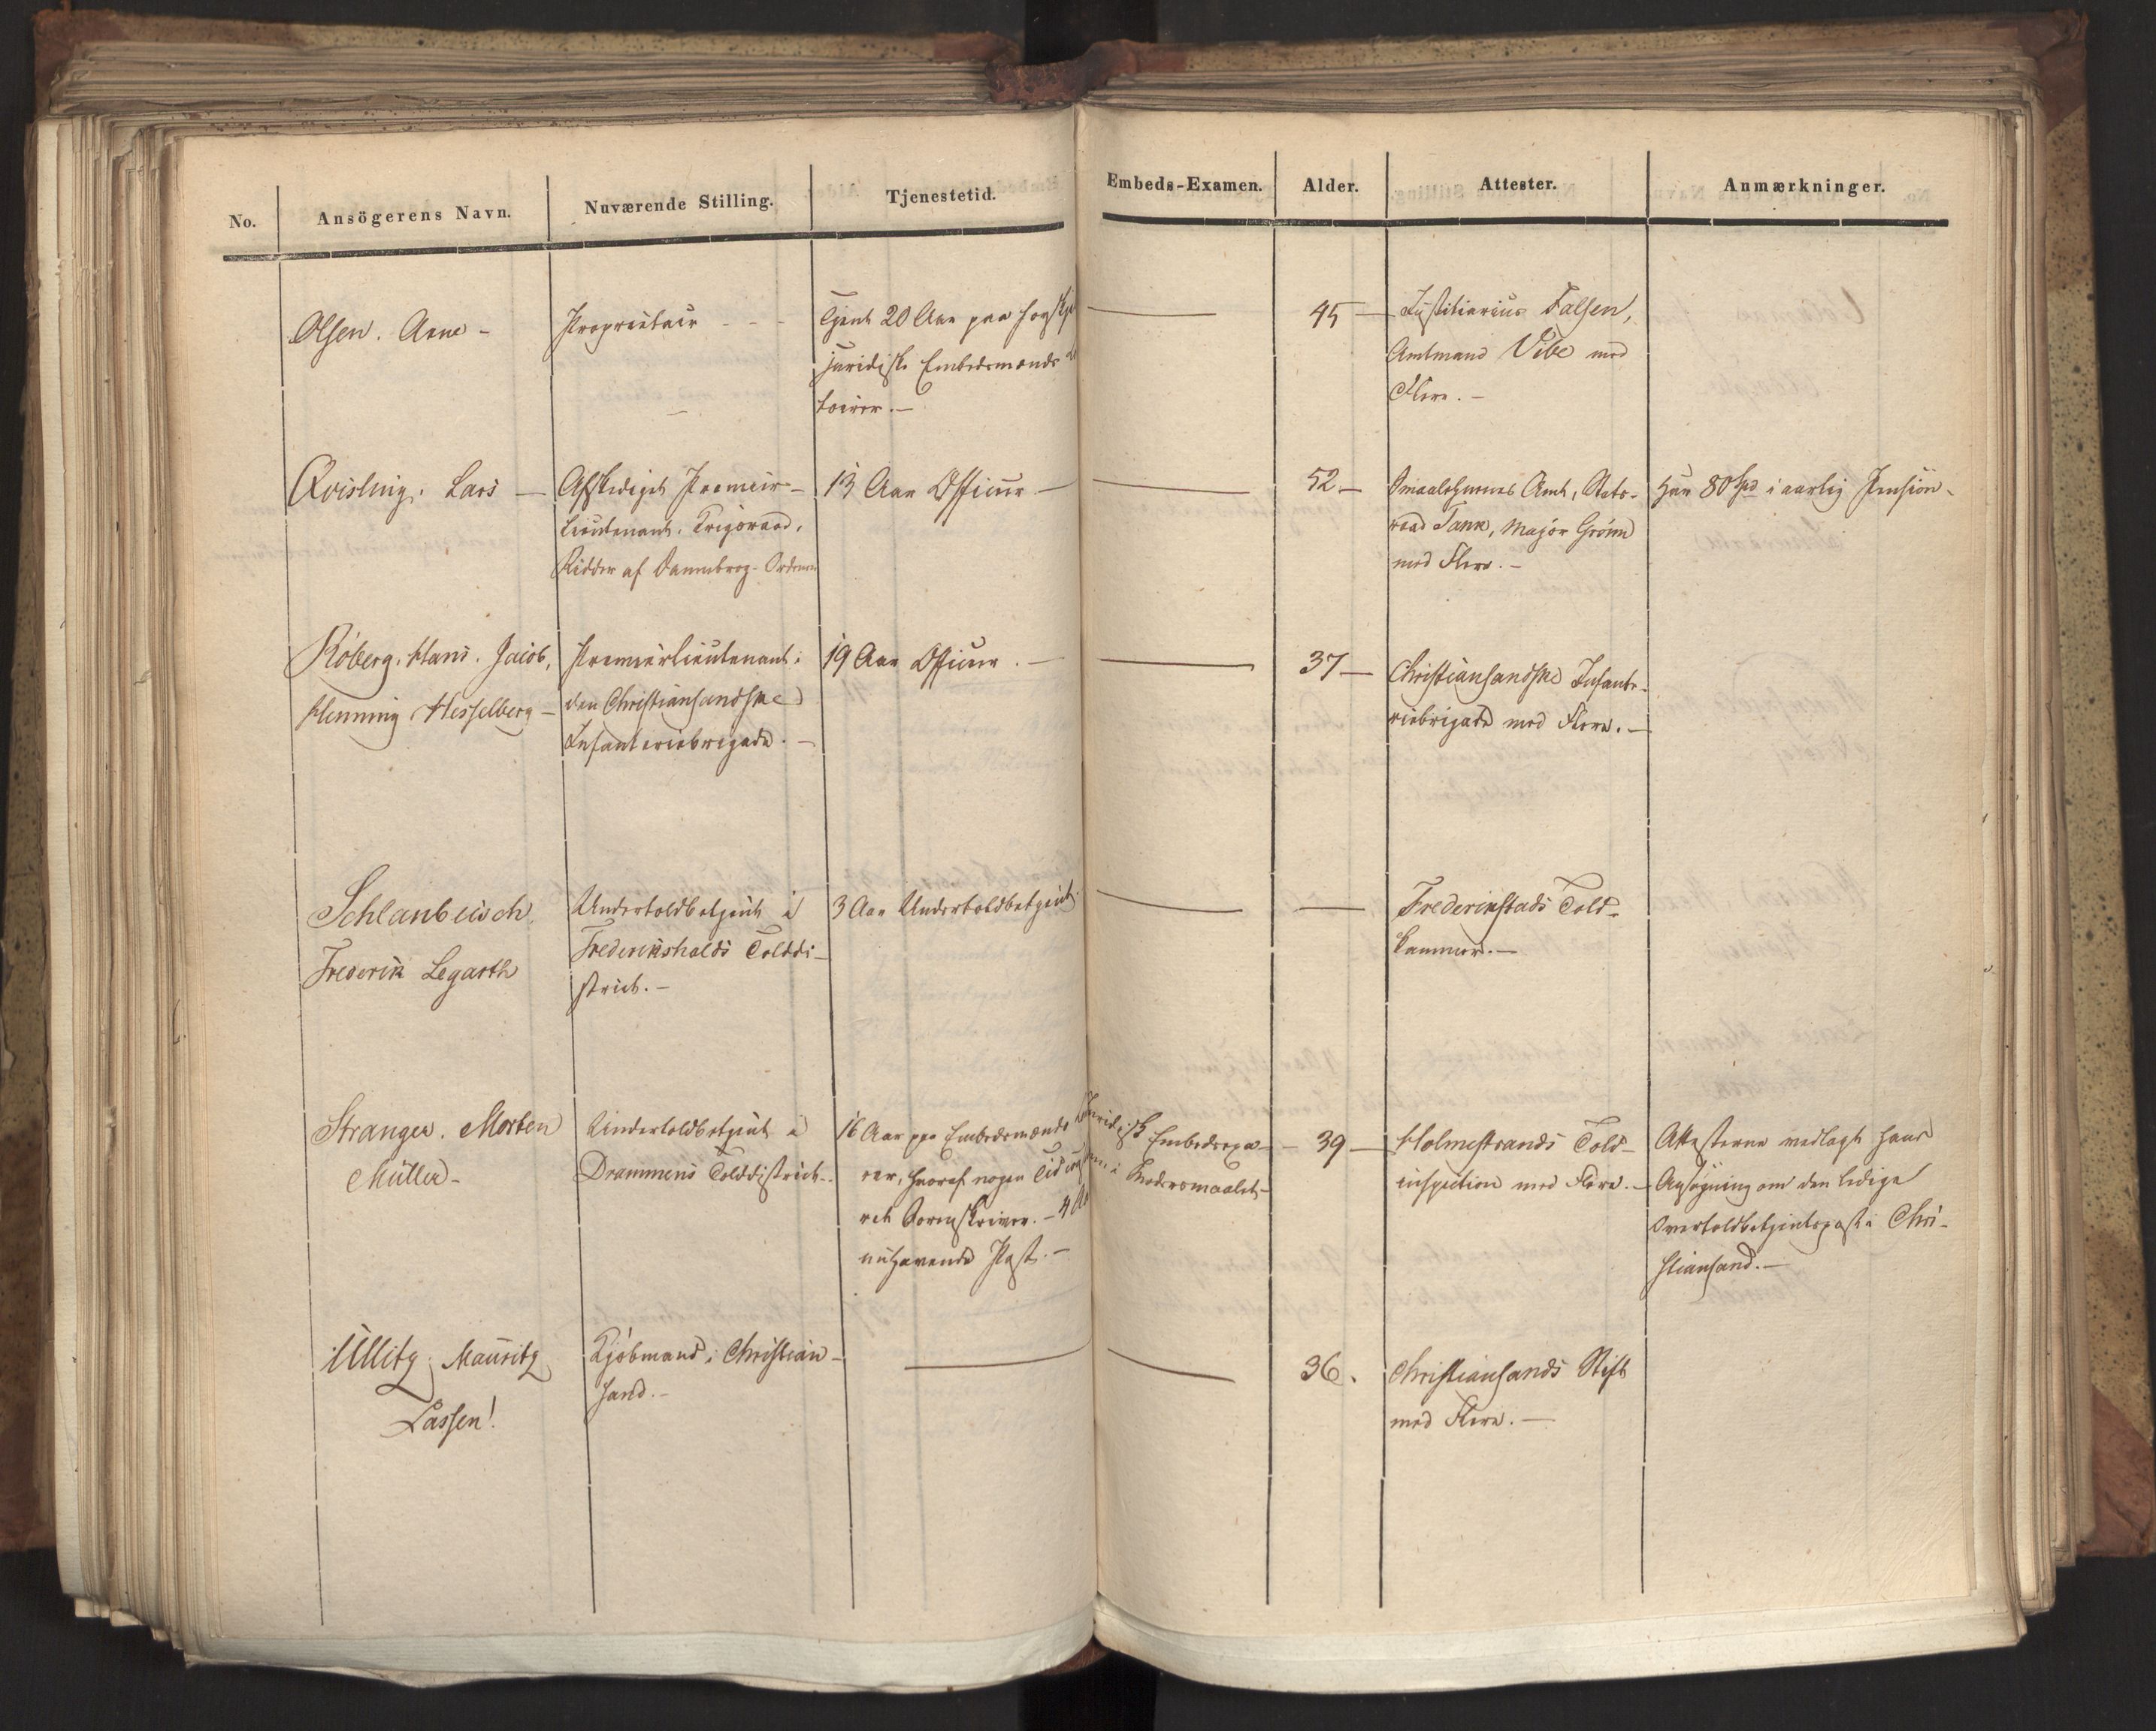 No.
Ansögerens Navn.
Nuværende Stilling.
Tjenestetid.
Embeds-Examen.
Alder.
Attester.
Anmærkninger.
Olsen. Arne -
Proprietair - - -
Tjent 20 Aar paa forskje
juridiske Embedsmænds
toirer. -
45 -
Justitiarius Falsen,
Amtmand Vibe med
Flere. -
Qvisling. Lars -
Afskediget Premier-
lieutenant. Krigsraad.
Ridder af Dannebrog-Ordenen
13 Aar Officeer -
52 -
Smaalehnenes Amt, Stats-
raad Tank, Major Grönn
med Flere. -
Har 80 Spd i aarlig Pension.
Röberg. Hans. Jacob,
Henning Hesselberg -
Premierlieutenant i
den Christiansandske
Infanteriebrigade. -
19 Aar Officeer. -
37 -
Christiansandske Infante-
riebrigade med Flere. -
Schlanbusch
Frederik Legarth
Undertoldbetjent i
Frederikshalds Tolddi-
strict. -
3 Aar Undertoldbetjent.
Frederikstads Told-
kammer. -
Stranger. Morten
Müller -
Undertoldbetjent i
Drammens Tolddistrict -
16 Aar paa Embedsmænds
rer, hvoraf nogen Tid
ret Sorenskriver. - 4
nuhavende Post. -
Juridisk Embedsexa-
men i Modersmaalet -
- 39 -
Holmestrands Told-
inspection med Flere. -
Attesterne vedlagt hans
Ansøgning om den ledige
Overtoldbetjentspost i Chri-
stiansand. -
Ullitz, Mauritz
Lassen!
Kjöbmand i Christian-
sand. -
36.
Christiansands Stift
med Flere. -